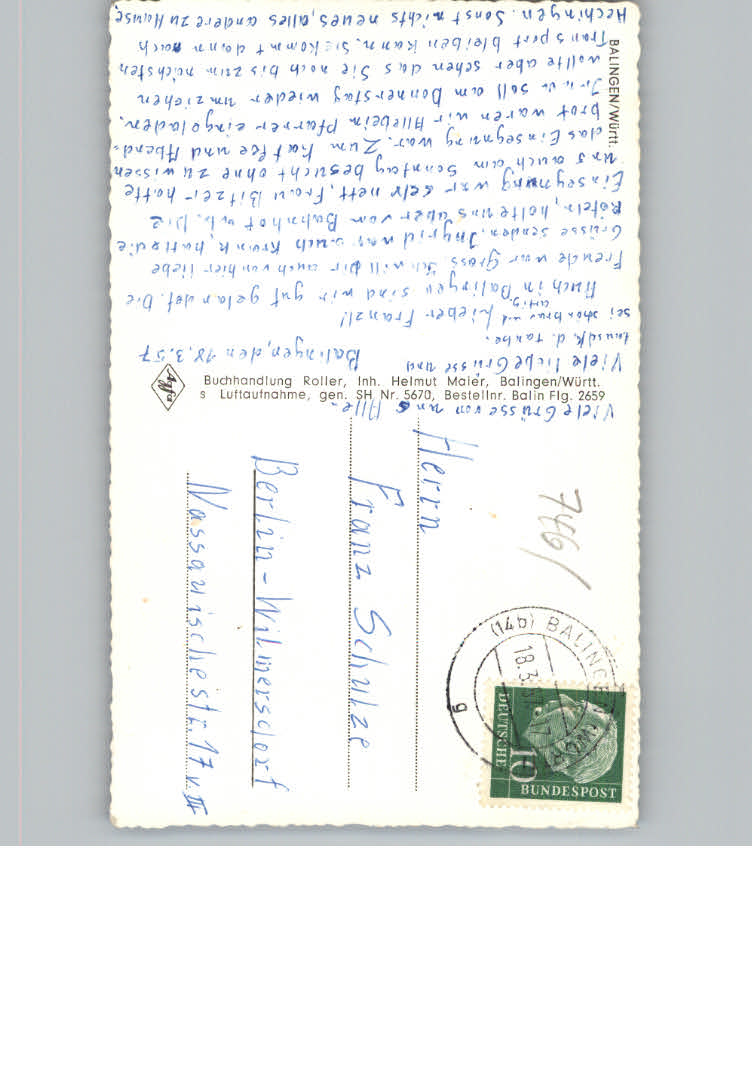 Balingen, den 18.3.57
Lieber Franz!!
Auch in Balingen sind wir gut gelandet. Die
Freude war gross. Ich will Dir auch von hier liebe
Grüsse senden. Ingrid war auch krank, hatte die
Röteln, holte uns aber vom Bahnhof ab. Die
Einsegnung war sehr nett. Frau Bitzer hatte
uns auch am Sonntag besucht ohne zu wissen
das Einsegnung war. Zum Kaffee und Abend-
brot waren wir Alle beim Pfarrer eingeladen.
soll am Donnerstag wieder umziehen
wollte aber sehen das Sie noch bis zum nächsten
Transport bleiben kann. Sie kommt dann nach
Hechingen. Sonst nichts neues, alles andere zu Hause
Viele liebe Grüsse und
tausd K. d. Tante.
sei schön brav und artig
Viele Grüsse von uns Alle.
BALINGEN/Württ.
Buchhandlung Roller, Inh. Helmut Maier, Balingen/Württ.
s Luftaufnahme, gen. SH Nr. 5670, Bestellnr. Balin Flg. 2659
Agfa
Herrn
Franz Schulze
Berlin-Wilmersdorf
Nassauischestr. 17 v. III
746/
(14b) BALINGEN (WÜRTT)
18.3.57
g
DEUTSCHE
BUNDESPOST
10